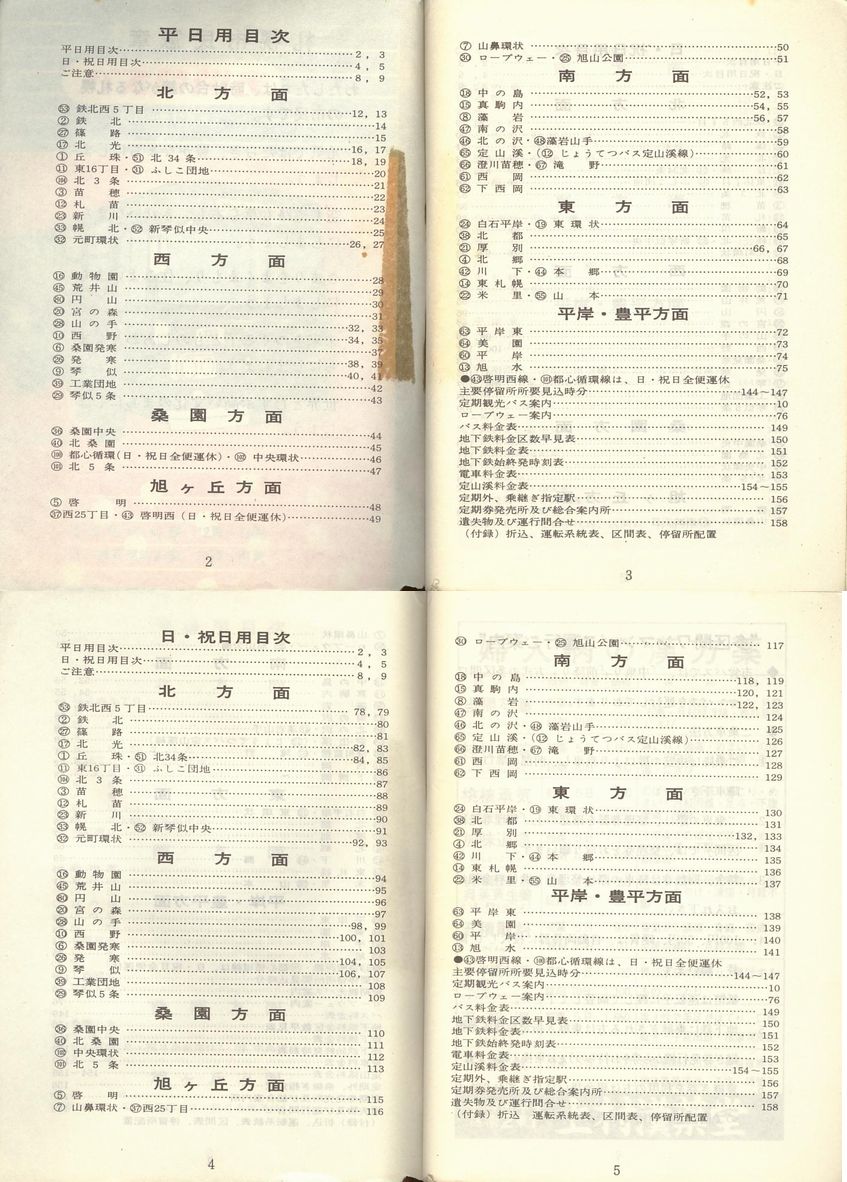 平日用目次
平日用目次……2, 3
日・祝日用目次……4, 5
ご注意……8, 9
北方面
㊼鉄北西5丁目……12, 13
②鉄北……14
㉗篠路……15
⑰北光……16, 17
①丘珠・㊿北34条……18, 19
⑪東16丁目・㉛ふしこ団地……20
北3条……21
③苗穂……22
⑫札苗……23
㉓新川……24
㉝幌北・新琴似中央……25
㉜元町環状……26, 27
西方面
⑯動物園……28
㊺荒井山……29
円山……30
⑳宮の森……31
㉘山の手……32, 33
⑩西野……34, 35
⑥桑園発寒……37
㉖発寒……38, 39
⑨琴似……40, 41
㊴工業団地……42
㉙琴似5条……43
桑園方面
㊱桑園中央……44
㊵北桑園……45
都心循環(日・祝日全便運休)・中央環状……46
北5条……47
旭ヶ丘方面
⑤啓明……48
㊲西25丁目・㊸啓明西(日・祝日全便運休)……49
2
⑦山鼻環状……50
ロープウェー・㉕旭山公園……51
南方面
⑱中の島……52, 53
⑮真駒内……54, 55
⑧藻岩……56, 57
㊼南の沢……58
㊻北の沢・㊽藻岩山手……59
定山溪・(⑫じょうてつバス定山溪線)……60
澄川苗穂・滝野……61
西岡……62
下西岡……63
東方面
㉔白石平岸・⑲東環状……64
㊳北都……65
㉑厚別……66, 67
④北郷……68
㊷川下・㊹本郷……69
⑭東札幌……70
㉒米里・山本……71
平岸・豊平方面
平岸東……72
美園……73
平岸……74
⑬旭水……75
●㊸啓明西線・都心循環線は、日・祝日全便運休
主要停留所所要見込時分……144～147
定期観光バス案内……10
ロープウェー案内……76
バス料金表……149
地下鉄料金区数早見表……150
地下鉄料金表……151
地下鉄始終発時刻表……152
電車料金表……153
定山溪料金表……154～155
定期外、乗継ぎ指定駅……156
定期券発売所及び総合案内所……157
遺失物及び運行問合せ……158
(付録)折込、運転系統表、区間表、停留所配置
3
日・祝日用目次
平日用目次……2, 3
日・祝日用目次……4, 5
ご注意……8, 9
北方面
鉄北西5丁目……78, 79
②鉄北……80
㉗篠路……81
⑰北光……82, 83
①丘珠・北34条……84, 85
⑪東16丁目・㉛ふしこ団地……86
北3条……87
③苗穂……88
⑫札苗……89
㉓新川……90
㉝幌北・新琴似中央……91
㉜元町環状……92, 93
西方面
⑯動物園……94
㊺荒井山……95
円山……96
⑳宮の森……97
㉘山の手……98, 99
⑩西野……100, 101
⑥桑園発寒……103
㉖発寒……104, 105
⑨琴似……106, 107
㊴工業団地……108
㉙琴似5条……109
桑園方面
㊱桑園中央……110
㊵北桑園……111
中央環状……112
北5条……113
旭ヶ丘方面
⑤啓明……115
⑦山鼻環状・㊲西25丁目……116
4
ロープウェー・㉕旭山公園……117
南方面
⑱中の島……118, 119
⑮真駒内……120, 121
⑧藻岩……122, 123
㊼南の沢……124
㊻北の沢・㊽藻岩山手……125
定山溪・(⑫じょうてつバス定山溪線)……126
澄川苗穂・滝野……127
西岡……128
下西岡……129
東方面
㉔白石平岸・⑲東環状……130
㊳北都……131
㉑厚別……132, 133
④北郷……134
㊷川下・㊹本郷……135
⑭東札幌……136
㉒米里・山本……137
平岸・豊平方面
平岸東……138
美園……139
平岸……140
⑬旭水……141
●㊸啓明西線・都心循環線は、日・祝日全便運休
主要停留所所要見込時分……144～147
定期観光バス案内……10
ロープウェー案内……76
バス料金表……149
地下鉄料金区数早見表……150
地下鉄料金表……151
地下鉄始終発時刻表……152
電車料金表……153
定山溪料金表……154～155
定期外、乗継ぎ指定駅……156
定期券発売所及び総合案内所……157
遺失物及び運行問合せ……158
(付録)折込 運転系統表、区間表、停留所配置
5